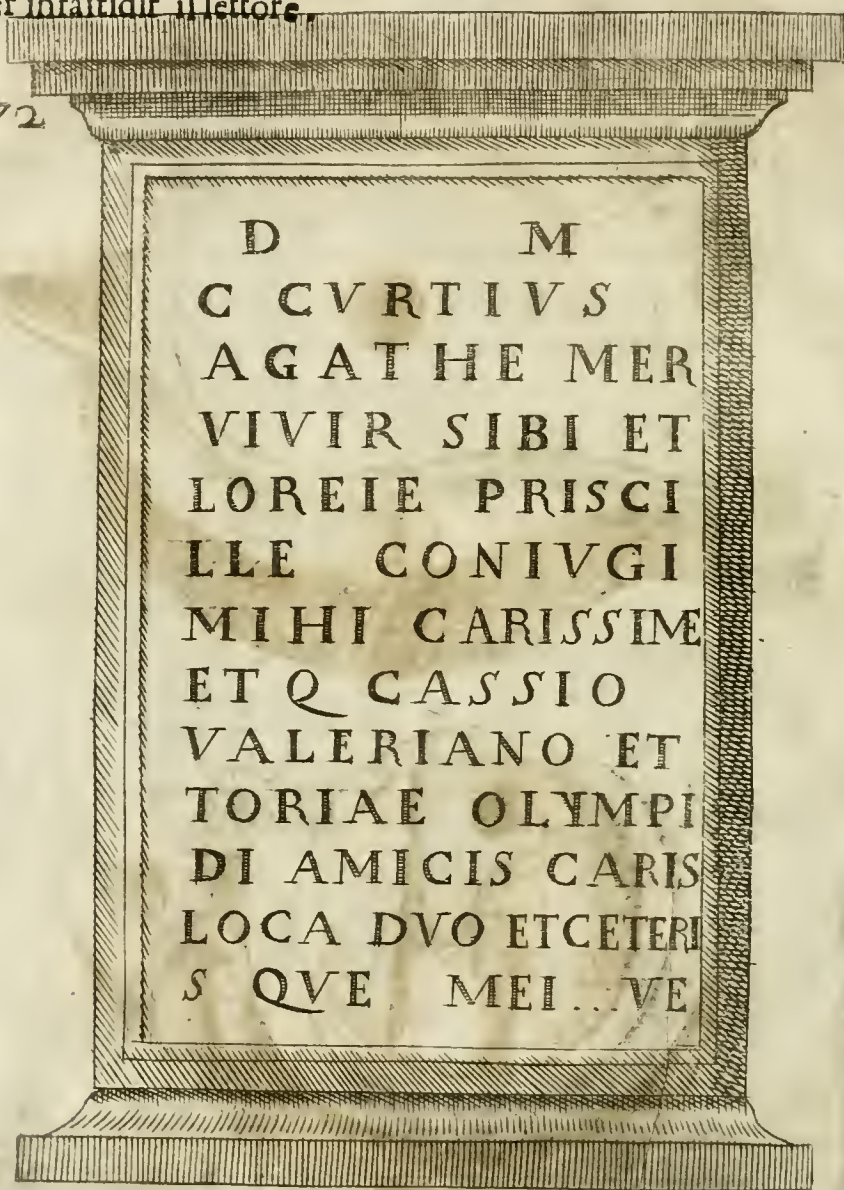 infastidir il lettore.
72
D M
C CVRTIVS
AGATHE MER
VIVIR SIBI ET
LOREIE PRISCI
LLE CONIVGI
MIHI CARISSIMÆ
ET Q CASSIO
VALERIANO ET
TORIAE OLYMPI
DI AMICIS CARIS
LOCA DVO ETCETERI
S QVE MEI...VE